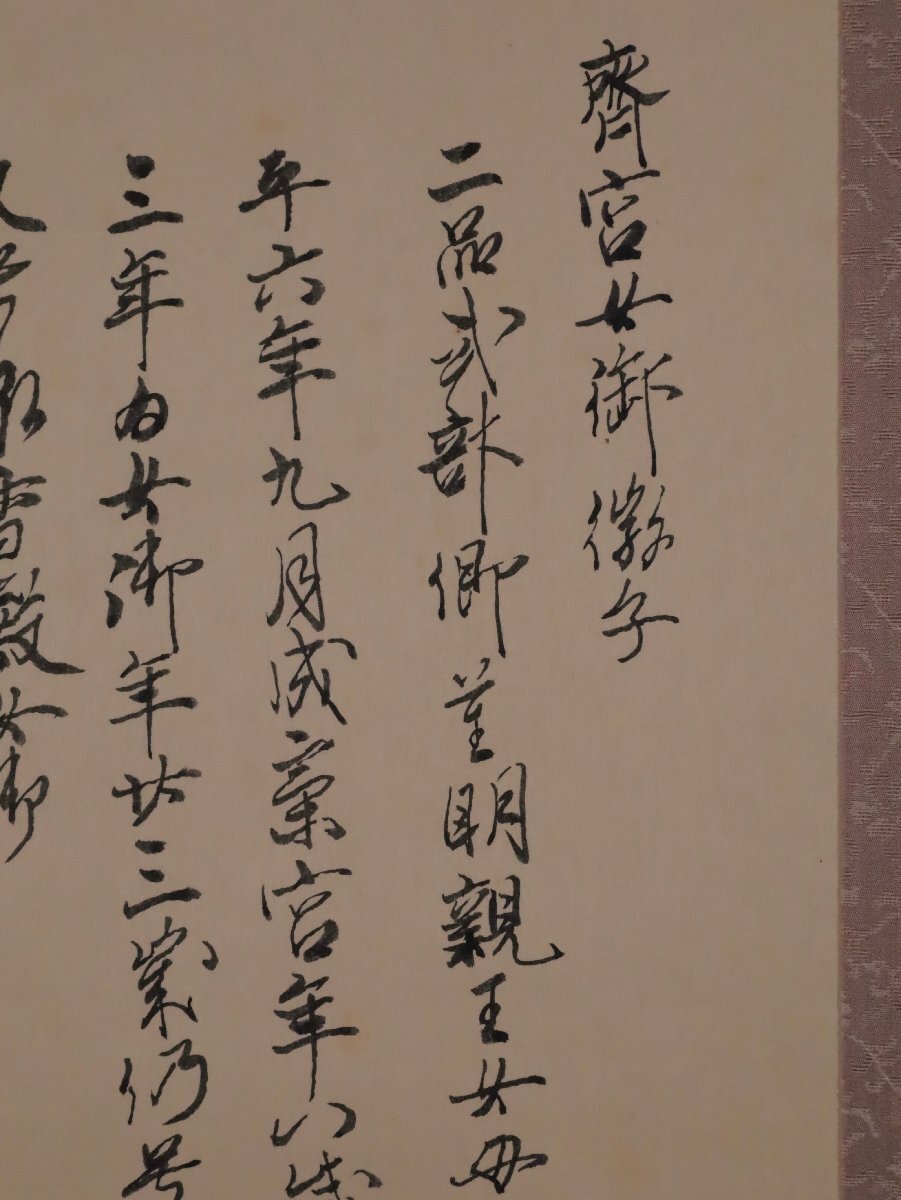 齊宮女御徽子
二品式部卿重明親王女母
平六年九月成齋宮年八歳
三年為女御年廿三歳仍号
又号承香殿女御